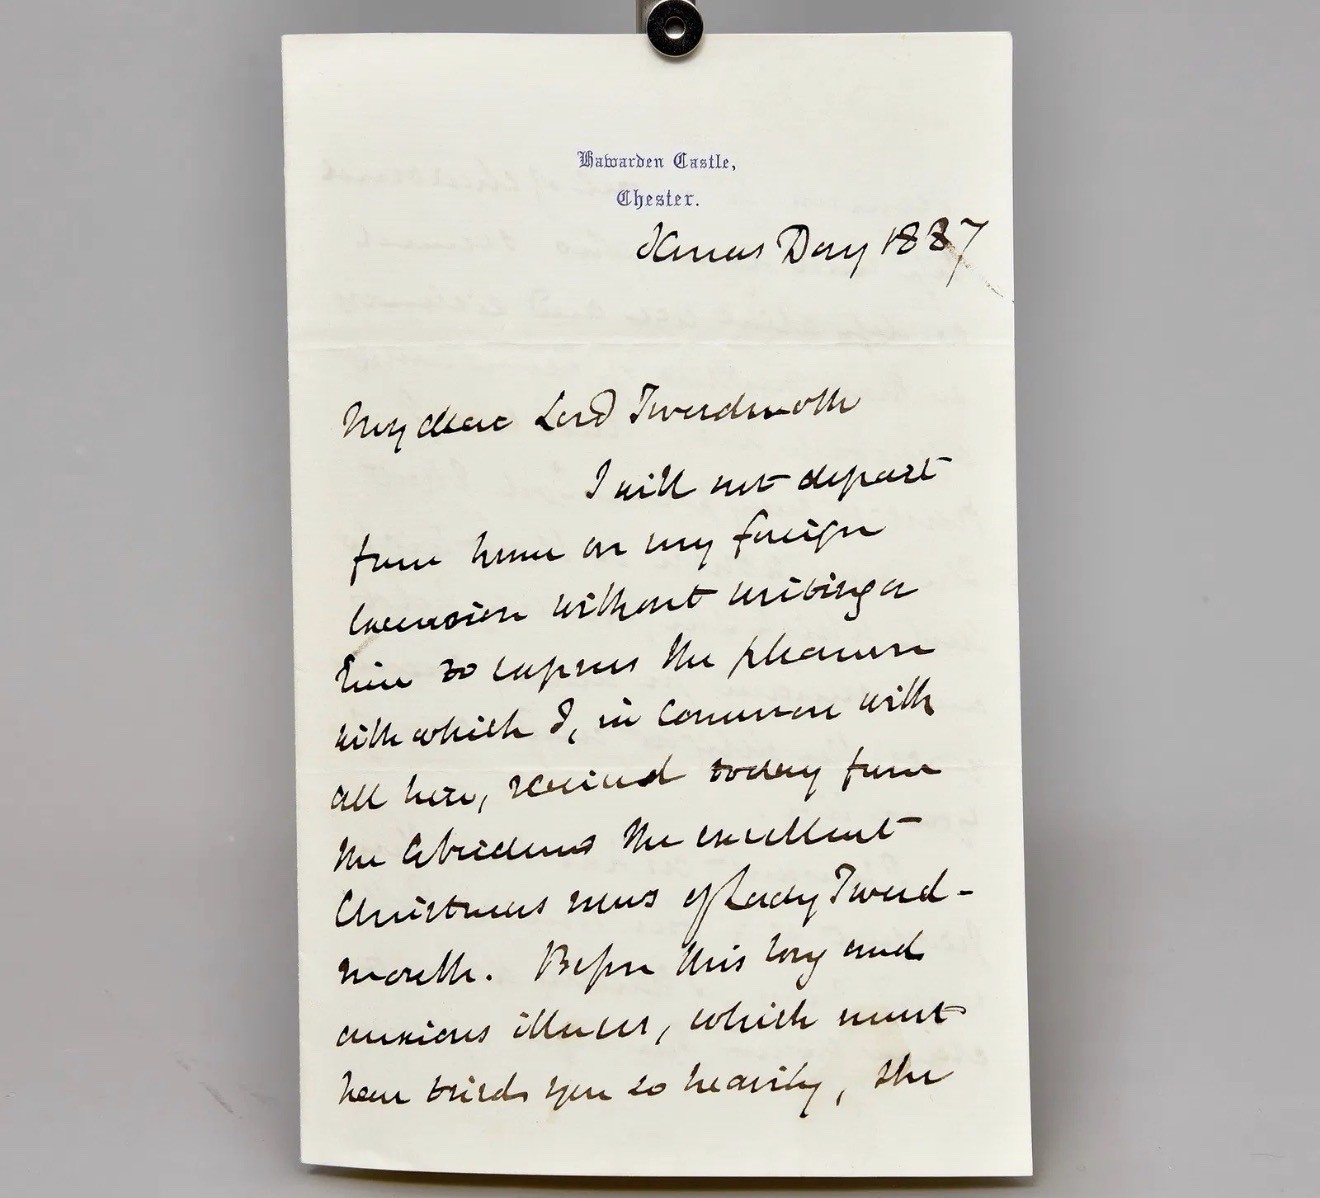 Hawarden Castle,
Chester.
Xmas Day 1887
My dear Lord Tweedmouth
I will not depart
from home on my foreign
excursion without writing a
line to express the pleasure
with which I, in common with
all here, received today from
the Aberdeens the excellent
Christmas news of Lady Tweed-
mouth. Before this long and
anxious illness, which must
have tried you so heavily, she